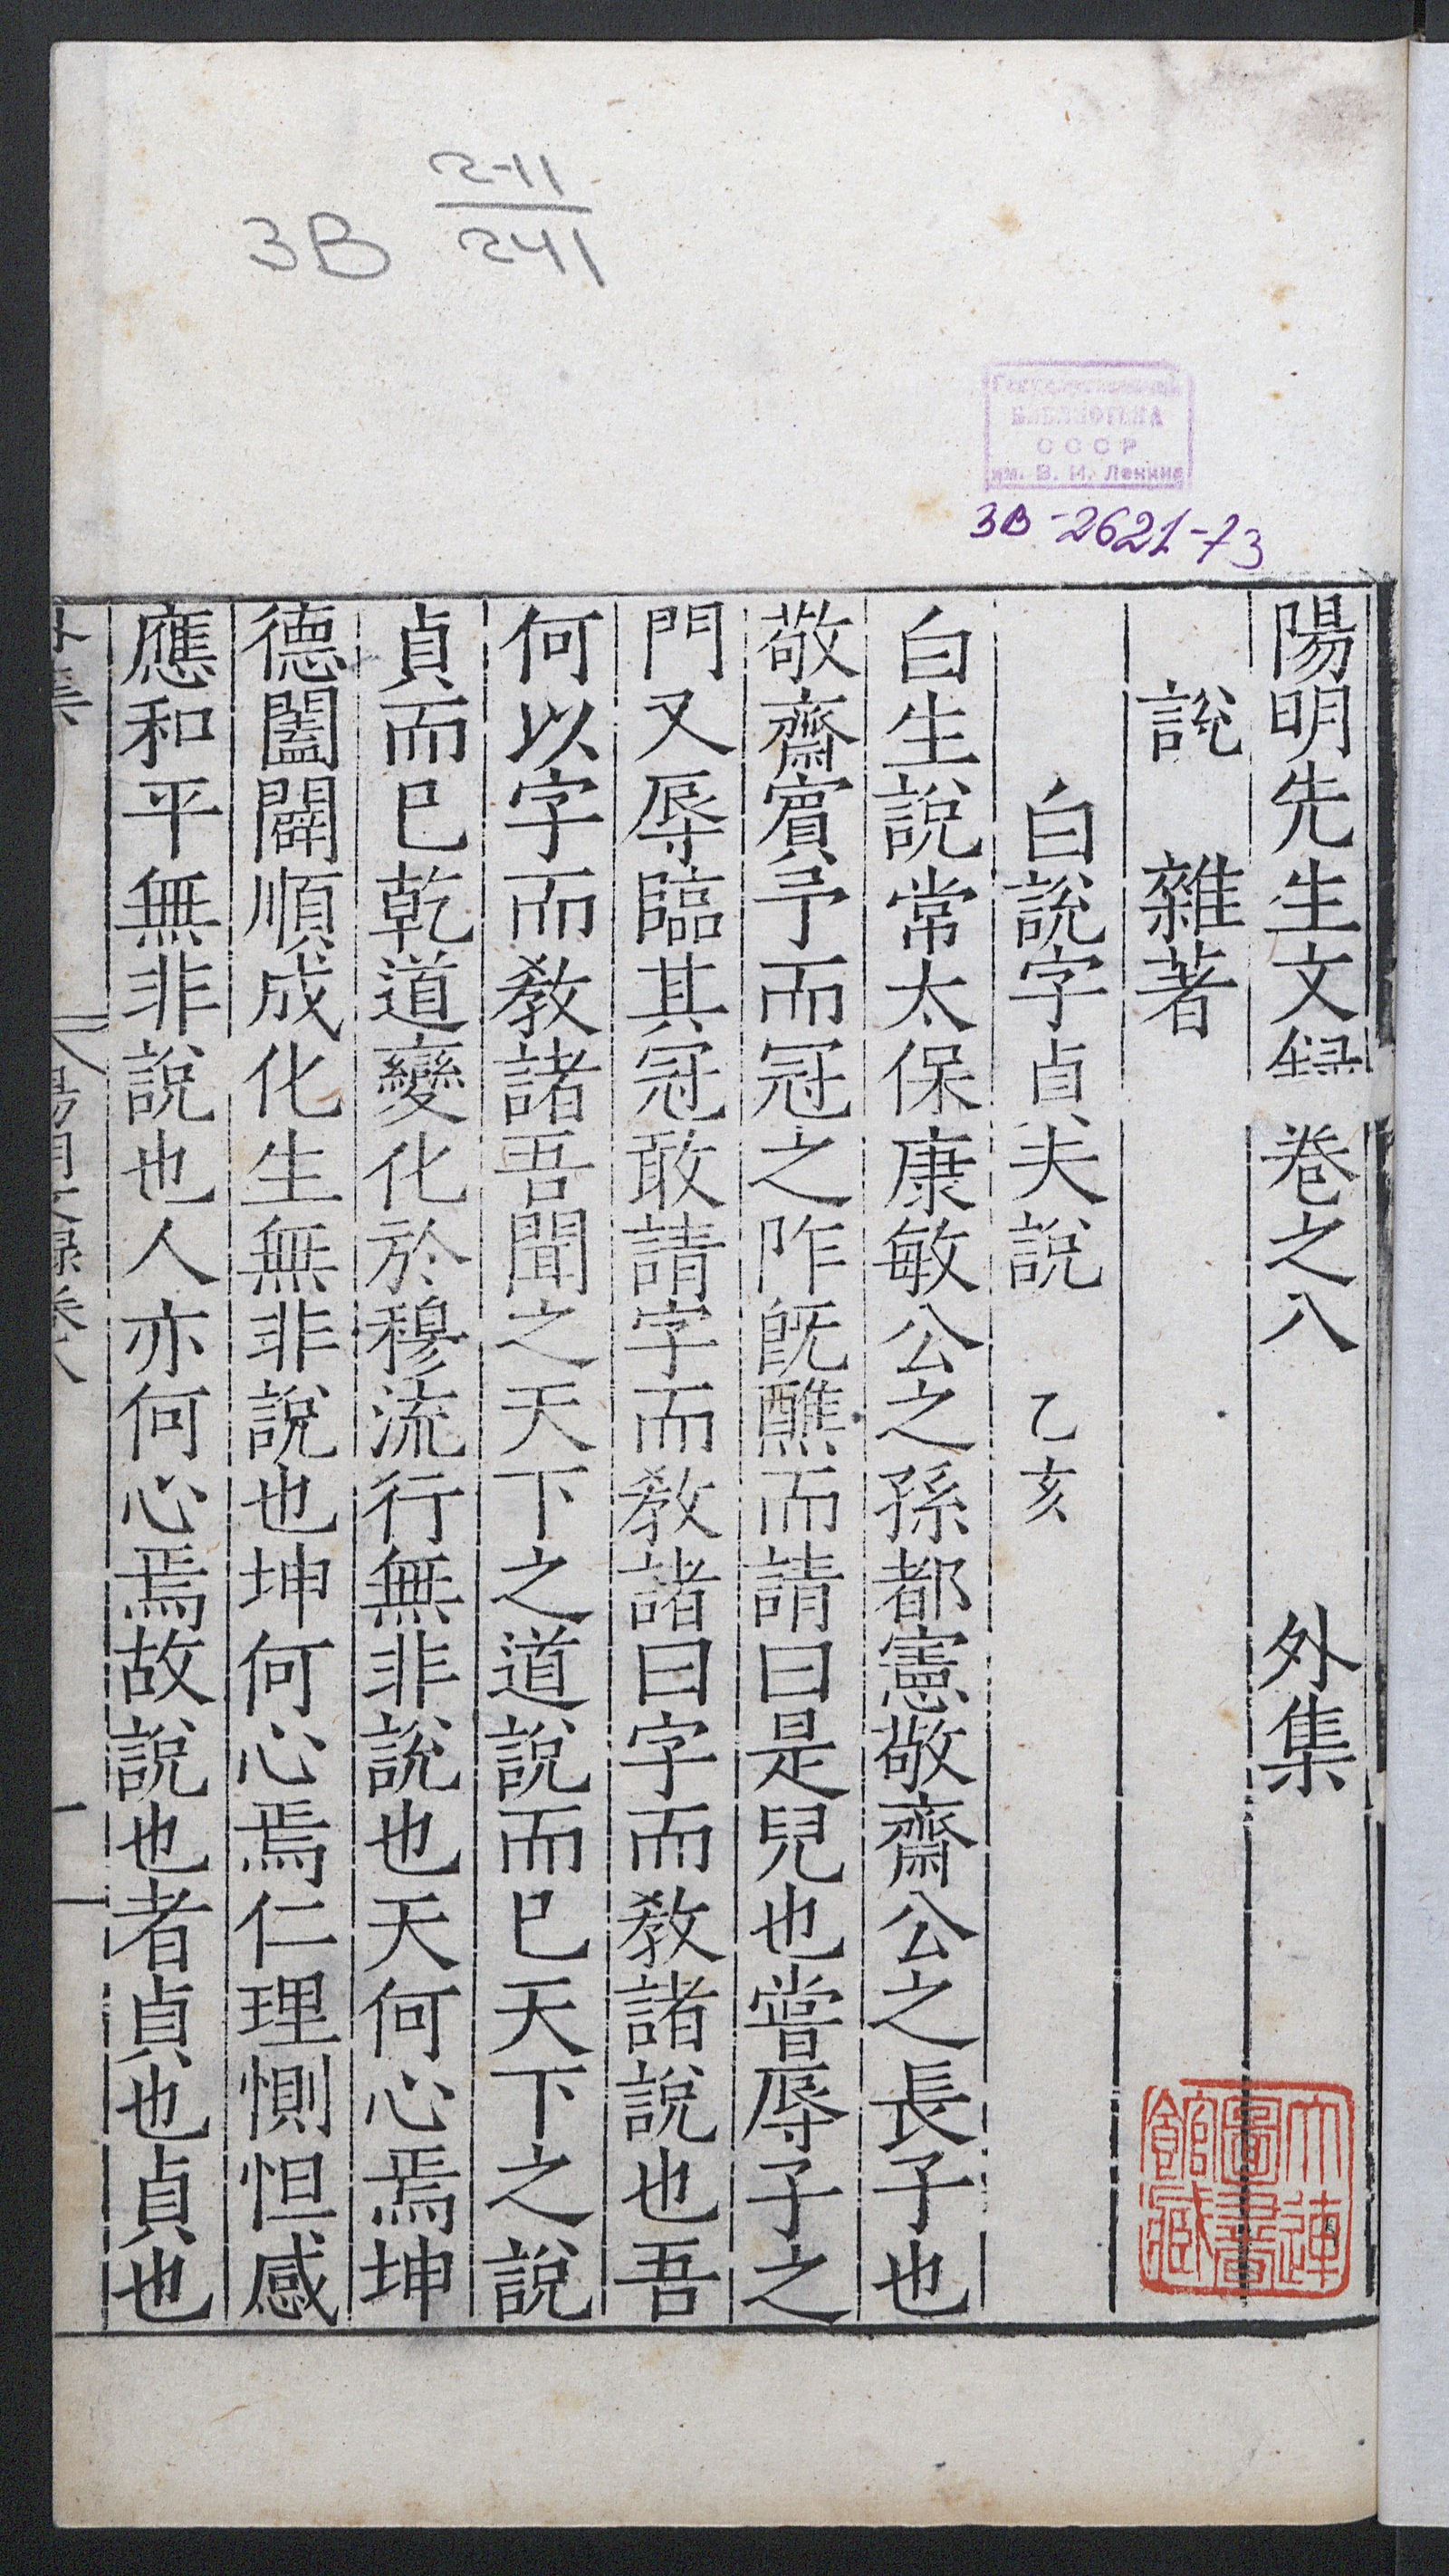 2-11
3B 241
БИБЛИОТЕКА
СССР
им. В. И. Ленина
3В-2621-73
陽明先生文録 卷之八 外集
說 雜著
白說字貞夫說 乙亥
白生說常太保康敏公之孫都憲敬齋公之長子也
敬齋賓予而冠之阼既醮而請曰是兒也嘗辱子之
門又辱臨其冠敢請字而教諸曰字而教諸說也吾
何以字而教諸吾聞之天下之道說而已天下之說
貞而已乾道變化於穆流行無非說也天何心焉坤
德闔闢順成化生無非說也坤何心焉仁理惻怛感
應和平無非說也人亦何心焉故說也者貞也貞也
外集 陽明文録卷八 一
大連
圖書
館藏